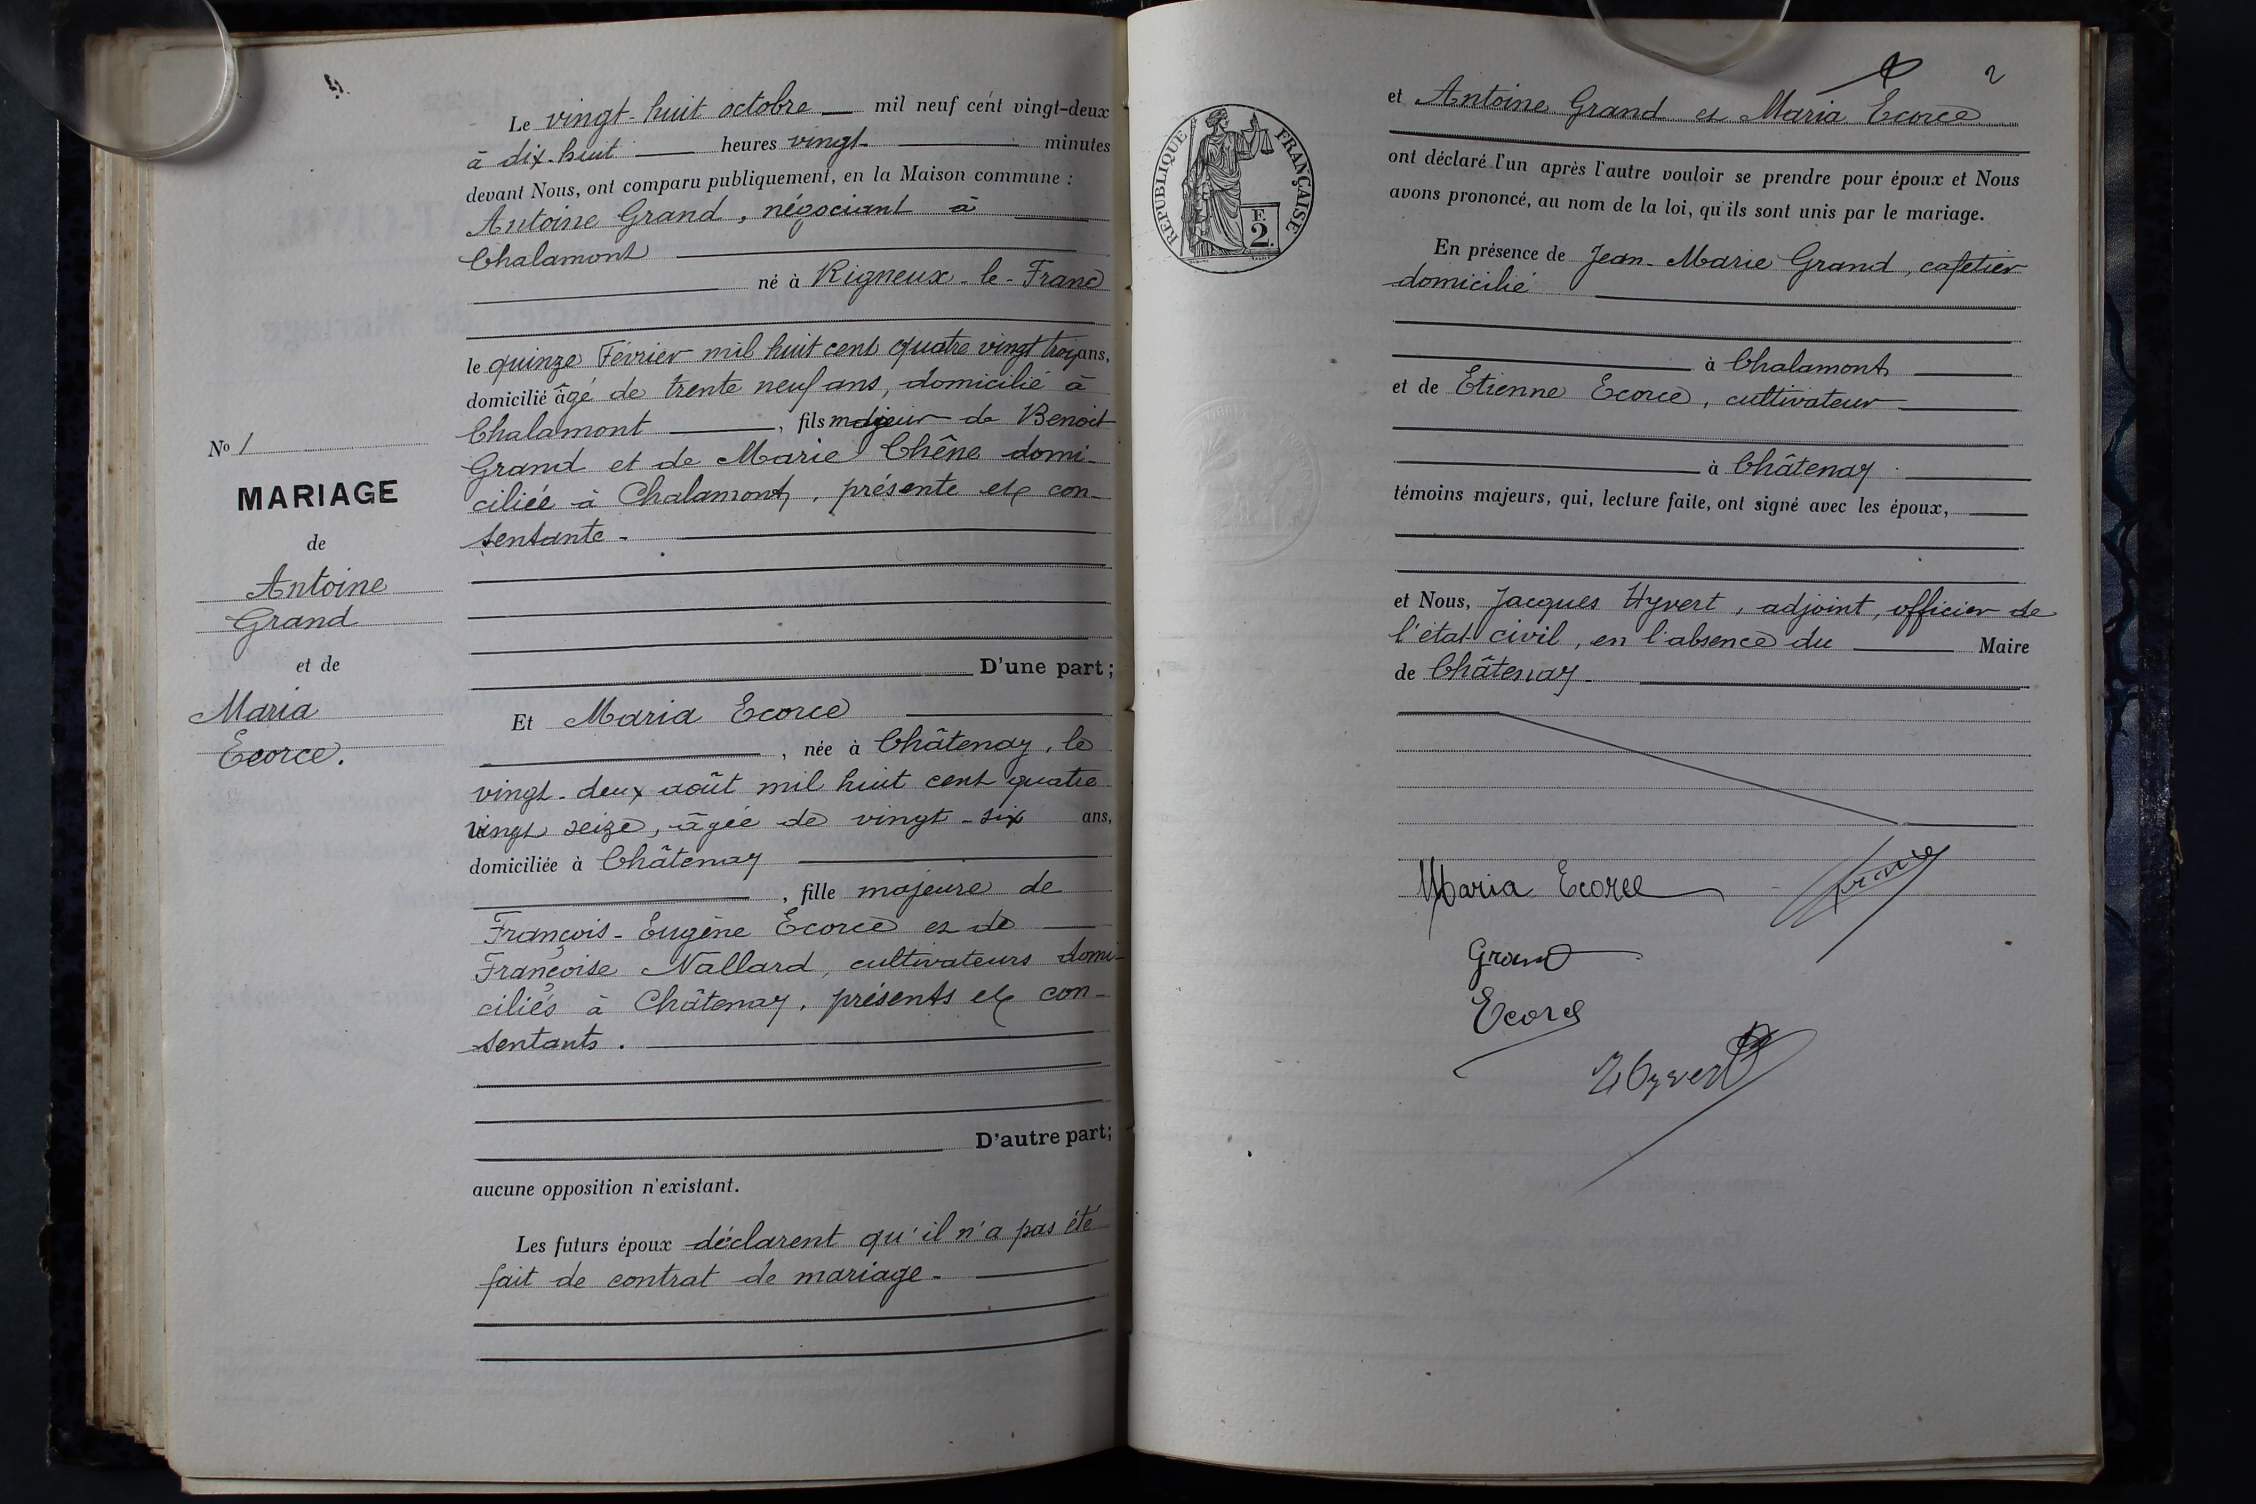 Le vingt-huit octobre mil neuf cent vingt-deux
à dix-huit heures vingt minutes
devant Nous, ont comparu publiquement, en la Maison commune :
Antoine Grand, négociant à
Chalamont
né à Rigneux-le-Franc
le quinze Février mil huit cent quatre vingt trois ans,
domicilié âgé de trente neuf ans, domicilié à
Chalamont, fils majeur de Benoit
Grand et de Marie Chêne domi-
ciliée à Chalamont, présente et con-
sentante.
D'une part;
No 1
MARIAGE
de
Antoine
Grand
et de
Maria
Ecorce.
Et Maria Ecorce
, née à Châtenay, le
vingt-deux août mil huit cent quatre
vingt seize, âgée de vingt-six ans,
domiciliée à Châtenay
, fille majeure de
François-Eugène Ecorce et de
Françoise Nallard, cultivateurs domi-
ciliés à Châtenay, présents et con-
sentants.
D'autre part;
aucune opposition n'existant.
Les futurs époux déclarent qu'il n'a pas été
fait de contrat de mariage.
2
et Antoine Grand et Maria Ecorce
RÉPUBLIQUE FRANÇAISE
F.
2.
ont déclaré l'un après l'autre vouloir se prendre pour époux et Nous
avons prononcé, au nom de la loi, qu'ils sont unis par le mariage.
En présence de Jean-Marie Grand, cafetier
domicilié
à Chalamont
et de Etienne Ecorce, cultivateur
à Châtenay.
témoins majeurs, qui, lecture faite, ont signé avec les époux,
et Nous, Jacques Hyvert, adjoint, officier de
l'état civil, en l'absence du Maire
de Châtenay.
Maria Ecorce Grand
Grand
Ecorce
Hyvert